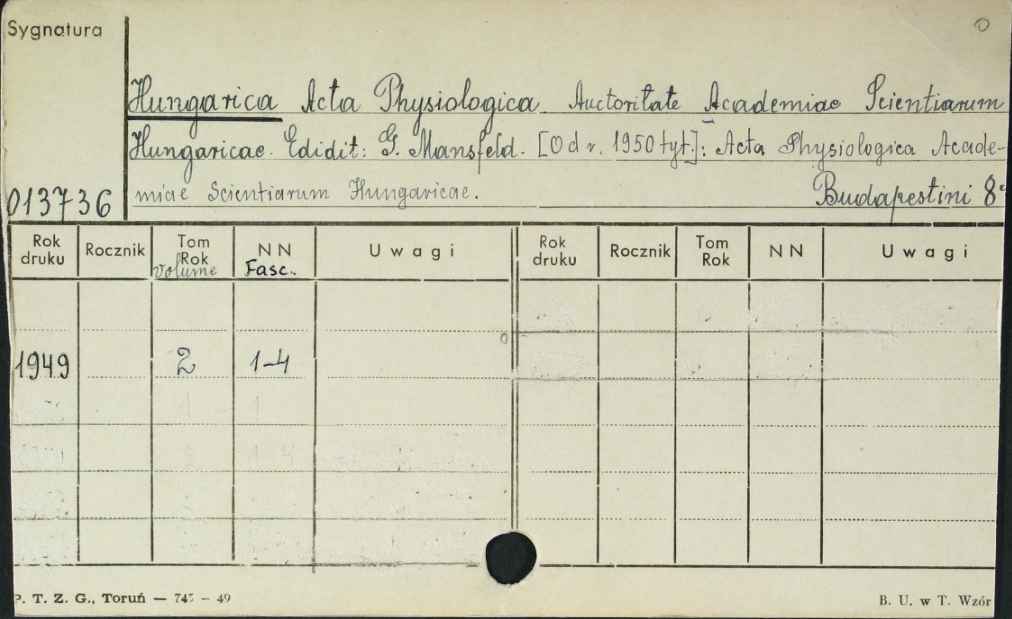 Sygnatura
Hungarica Acta Physiologica Auctoritate Academiae Scientiarum
Hungaricae. Edidit: G. Mansfeld. [Od r. 1950 tyt.]: Acta Physiologica Acade-
013736 miae Scientiarum Hungaricae. Budapestini 8°
Rok druku Rocznik Tom Rok volume NN Fasc. Uwagi Rok druku Rocznik Tom Rok NN Uwagi
1949 2 1-4
P. T. Z. G., Toruń — 745 — 49 B. U. w T. Wzór